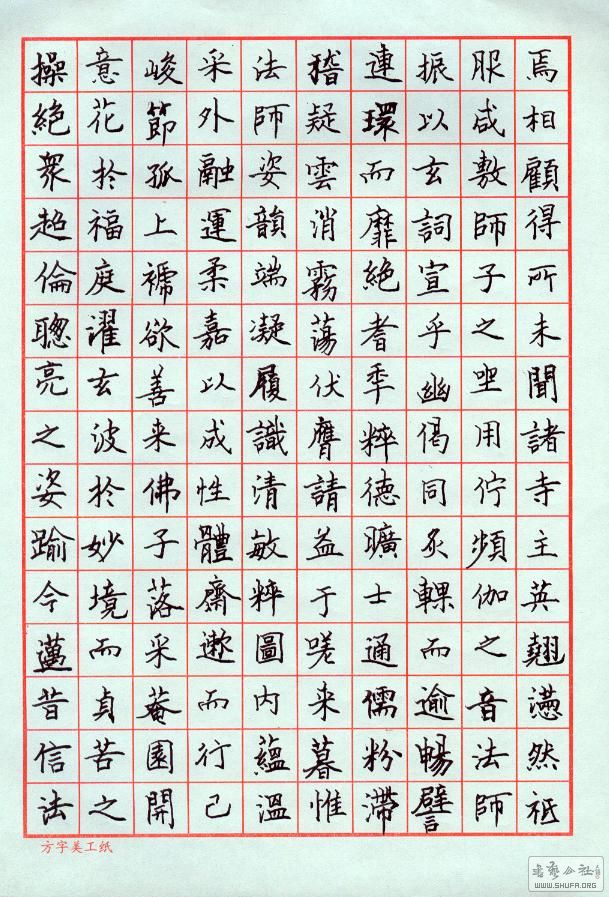 焉相顧得所未聞諸寺主英翹懣然祇
服咸敷師子之坐用佇頻伽之音法師
振以玄詞宣乎幽偈同炙輠而逾暢譬
連環而靡絕耆秊粹德曠士通儒粉滯
稽疑雲消霧蕩伏膺請益于嗟来暮惟
法師姿韻端凝履識清敏粹圖內蘊溫
采外融運柔嘉以成性體齋遬而行己
峻節孤上襦欲善来佛子落采菴園開
意花於福庭濯玄波於妙境而貞苦之
操絕衆超倫聰亮之姿踰今邁昔信法
方字美工纸
书艺公社
WWW.SHUFA.ORG